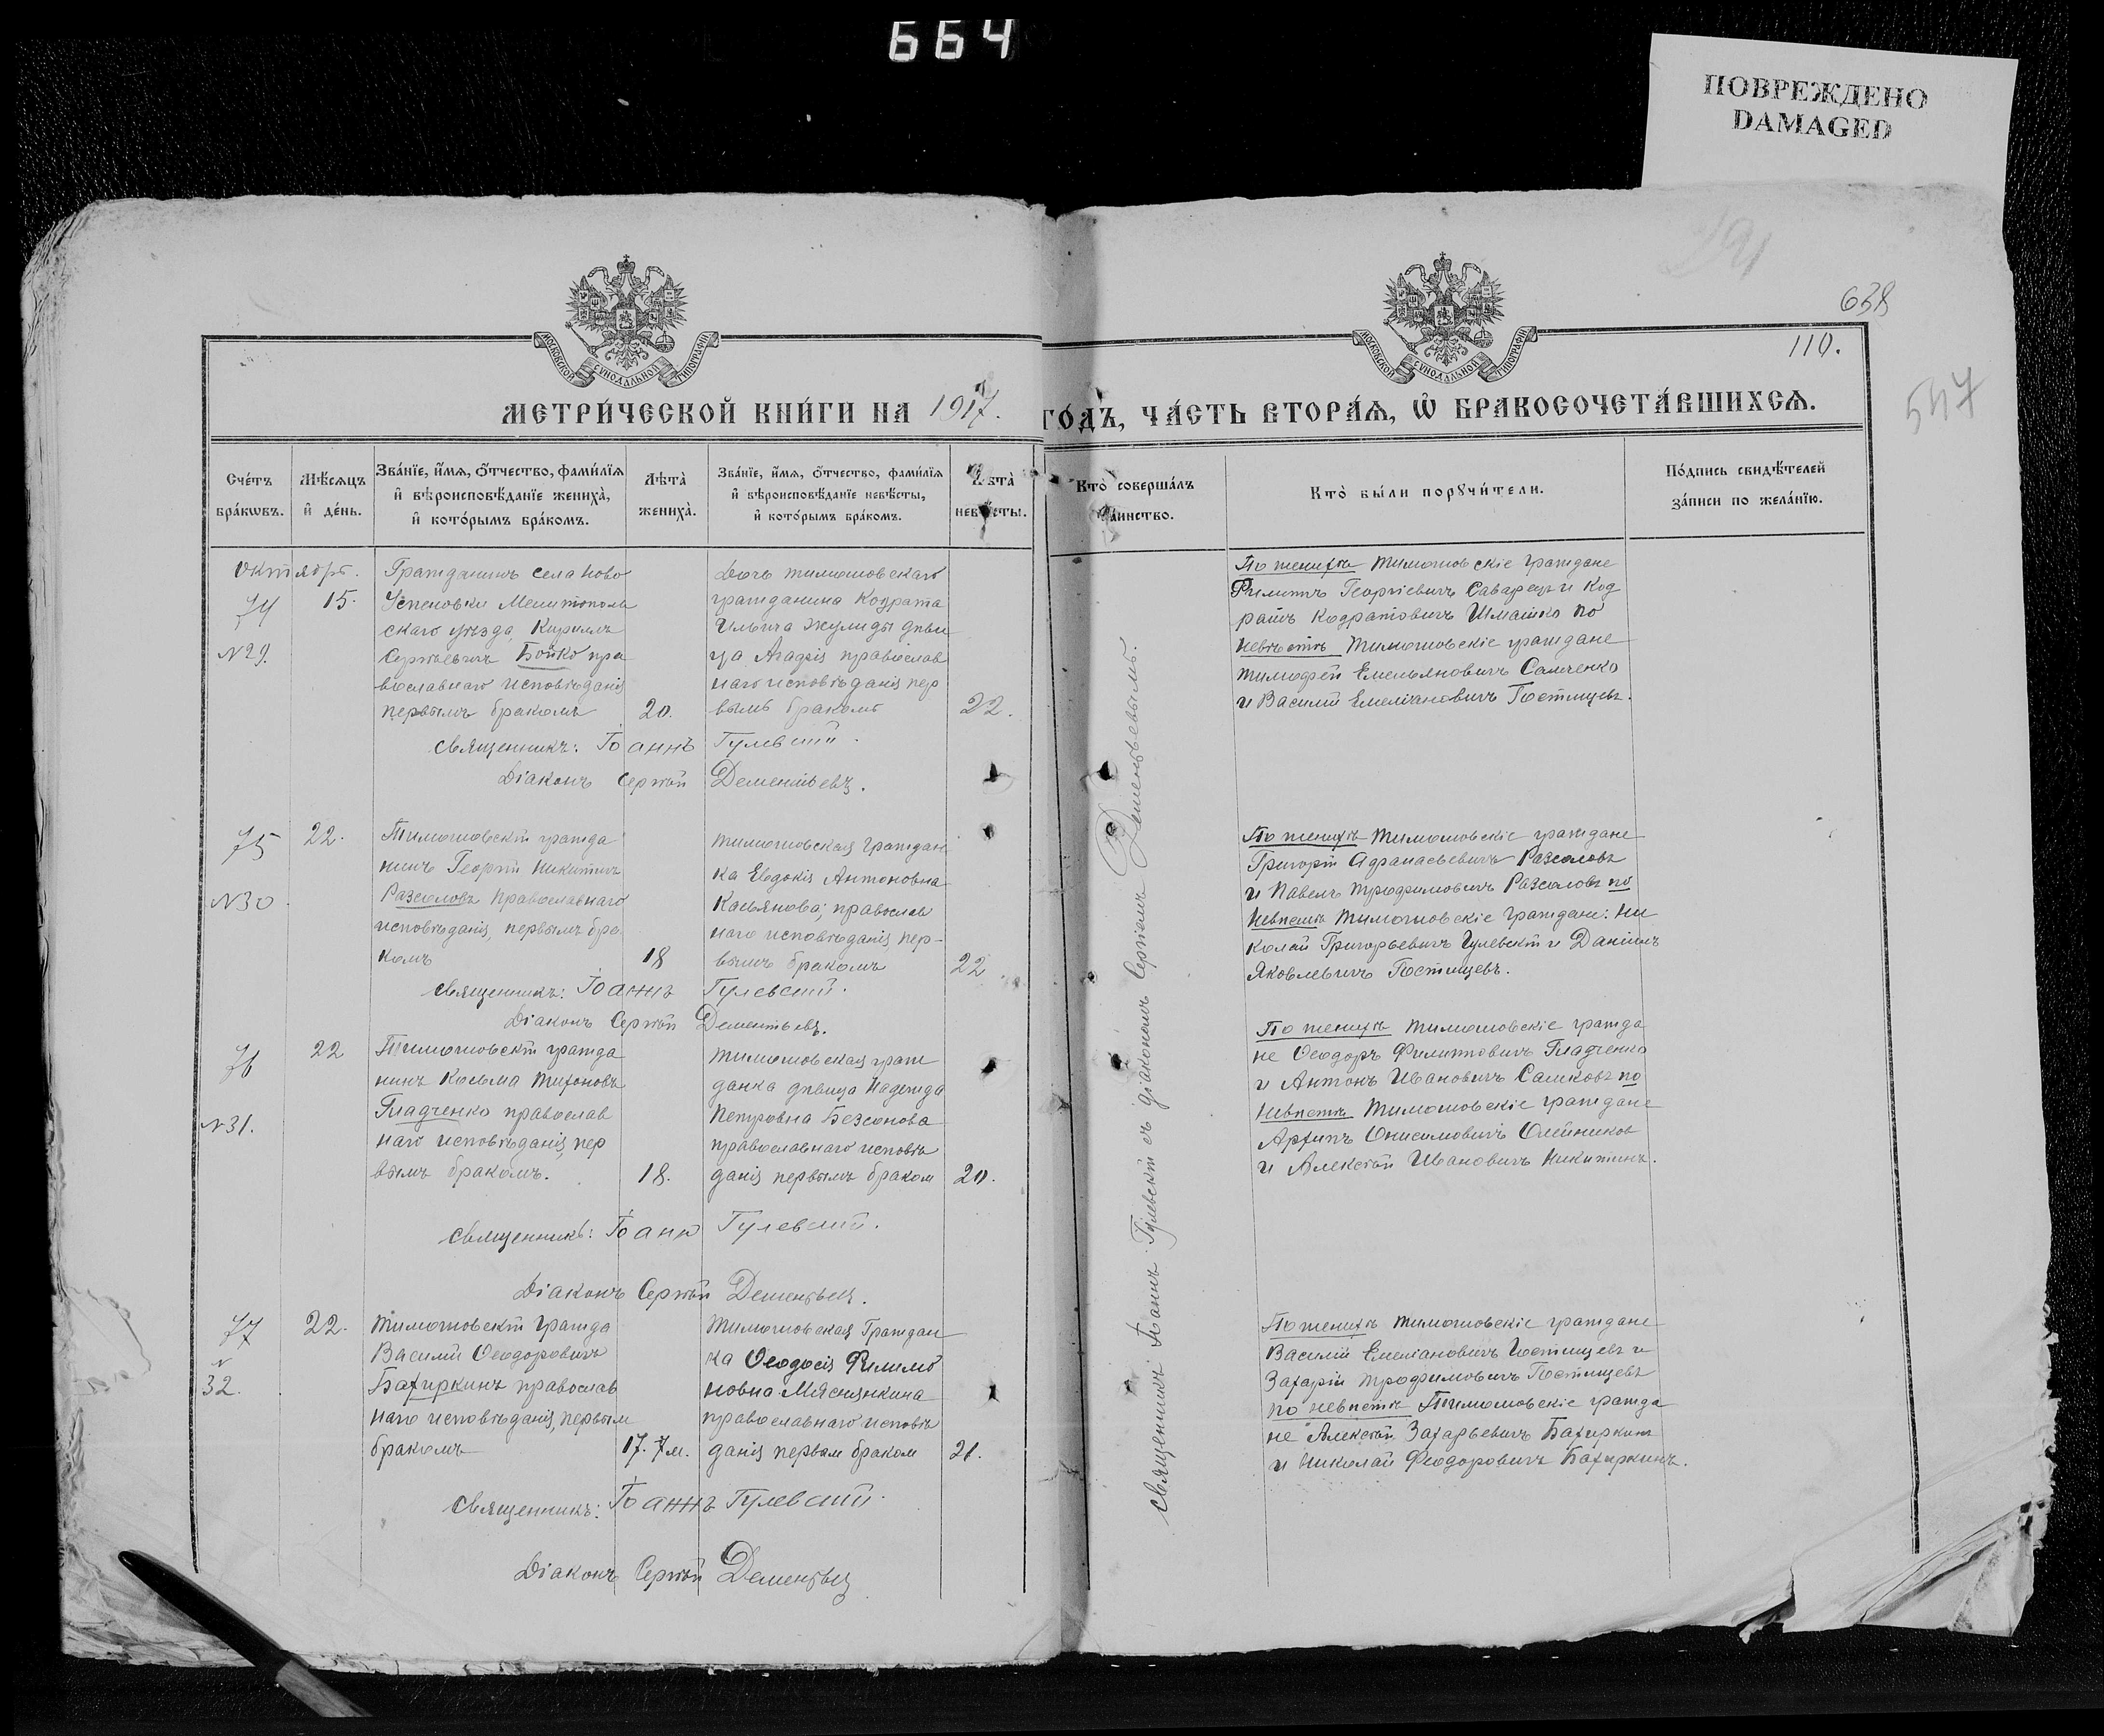 664
ПОВРЕЖДЕНО
DAMAGED
638
110.
547
МОСКОВСКОЙ СѴНОДАЛЬНОЙ ТИПОГРАФІИ
МОСКОВСКОЙ СѴНОДАЛЬНОЙ ТИПОГРАФІИ
МЕТРИ́ЧЕСКОЙ КНИ́ГИ НА 1917. ГО́ДЪ, ЧА́СТЬ ВТОРА́Ѧ, Ѡ҆ БРАКОСОЧЕТА́ВШИХСѦ.
Сче́тъ бра́кѡвъ.
Мѣ́сѧцъ и҆ де́нь.
Зва́нїе, и҆́мѧ, ѻ҆́тчество, фами́лїѧ
и҆ вѣроисповѣ́данїе жениха̀,
и҆ кото́рымъ бра́комъ.
Лѣта̀ жениха̀.
Зва́нїе, и҆́мѧ, ѻ҆́тчество, фами́лїѧ
и҆ вѣроисповѣ́данїе невѣ́сты,
и҆ кото́рымъ бра́комъ.
Лѣта̀ невѣ́сты.
Кто̀ соверша́лъ таинство.
Кто̀ бы́ли порꙋчи́тели.
По́дпись свидѣ́телей
за́писи по жела́нїю.
Октября.
74
15.
N29.
Гражданинъ села Ново
Успеновки Мелитополь
скаго уѣзда, Кириллъ
Сергѣевичъ Бойко пра
вославнаго исповѣданія
первымъ бракомъ
20.
Дочь Тимошовскаго
гражданина Кодрата
Ильича Жулиды дѣви
ца Агафія православ
наго исповѣданія пер
вымъ бракомъ
22.
По женихѣ Тимошовскіе граждане
Филиппъ Георгіевичъ Саварецъ и Код
ратъ Кодратовичъ Шматко по
невѣстѣ Тимошовскіе граждане
Тимофей Емельяновичъ Самченко
и Василій Емеліановичъ Постищевъ.
Священникъ: Іоаннъ Гулевскій.
Діаконъ Сергѣй Дементьевъ.
75
22.
N30
Тимошовскій гражда
нинъ Георгій Никитичъ
Разсоловъ православнаго
исповѣданія, первымъ бра
комъ
18
Тимошовская граждан
ка Евдокія Антоновна
Касьянова; православ
наго исповѣданія пер-
вымъ бракомъ
22
По женихѣ Тимошовскіе граждане
Григорій Афанасьевичъ Разсоловъ
и Павелъ Трофимовичъ Разсоловъ по
невѣстѣ Тимошовскіе граждане: Ни
колай Григорьевичъ Гулевскій и Даніилъ
Яковлевичъ Постищевъ.
Священникъ: Іоаннъ Гулевскій.
Діаконъ Сергѣй Дементьевъ.
76
22
N31.
Тимошовскій гражда
нинъ Косьма Тихоновъ
Гладченко православ
наго исповѣданія, пер
вымъ бракомъ.
18.
Тимошовская граж
данка дѣвица Надежда
Петровна Безсонова
православнаго исповѣ
данія первымъ браком
20.
По женихѣ Тимошовскіе гражда
не Ѳеодоръ Филипповичъ Гладченко
и Антонъ Ивановичъ Салковъ по
невѣстѣ Тимошовскіе граждане
Архипъ Онисимовичъ Олейников
и Алексѣй Ивановичъ Никитинъ.
Священникъ: Іоанн Гулевскій.
Діаконъ Сергѣй Дементьевъ.
77
22.
N
32.
Тимошовскій гражда
Василій Ѳеодоровичъ
Бахиркинъ православ
наго исповѣданія, первым
бракомъ
17. 7м.
Тимошовская граждан
ка Ѳеодосія Филимо
новна Мяснянкина
православнаго исповѣ
данія первым браком
21.
По женихѣ Тимошовскіе граждане
Василій Емеліановичъ Постищевъ и
Захарій Трофимовичъ Постищевъ
по невѣстѣ Тимошовскіе гражда
не Алексѣй Захарьевичъ Бахиркинъ
и Николай Феодоровичъ Бахиркинъ.
Священникъ: Іоаннъ Гулевскій.
Діаконъ Сергѣй Дементьевъ
Священникъ Іоаннъ Гулевскій съ діакономъ Сергіемъ Дементьевымъ.